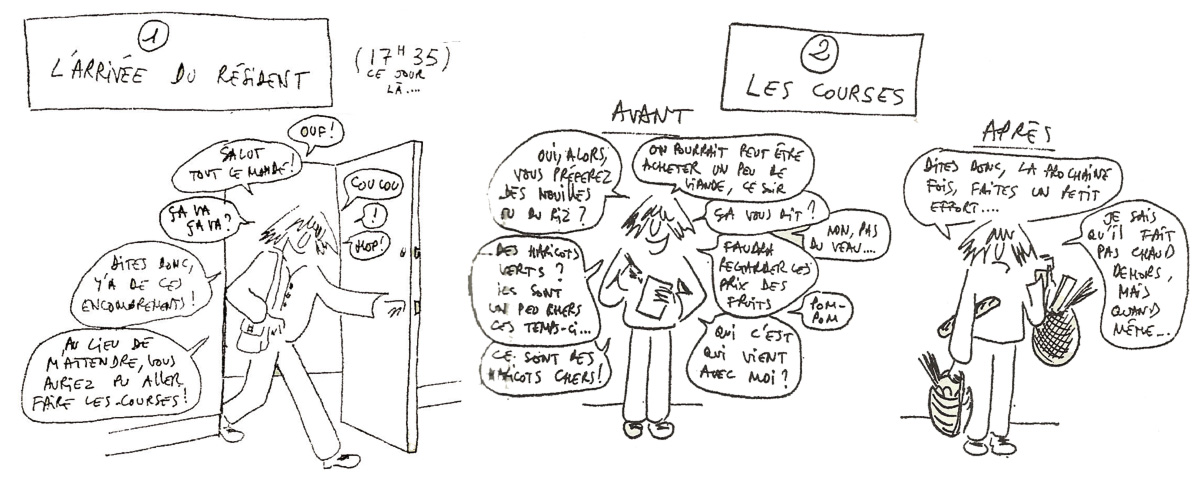 1
L'ARRIVÉE DU RÉSIDENT
(17H35)
CE JOUR
LÀ....
OUF!
SALUT
TOUT LE MONDE!
COUCOU
!
HOP!
ÇA VA
ÇA VA?
DITES DONC,
Y'A DE CES
ENCOMBREMENTS!
AU LIEU DE
M'ATTENDRE, VOUS
AURIEZ PU ALLER
FAIRE LES COURSES!
2
LES COURSES
AVANT
OUI, ALORS,
VOUS PRÉFEREZ
DES NOUILLES
OU DU RIZ?
ON POURRAIT PEUT ÊTRE
ACHETER UN PEU DE
VIANDE, CE SOIR
ÇA VOUS DIT?
NON, PAS
DU VEAU....
DES HARICOTS
VERTS?
ILS SONT
UN PEU CHERS
CES TEMPS-CI...
FAUDRA
REGARDER LES
PRIX DES
FRUITS
POM-
POM
CE SONT DES
HARICOTS CHERS!
QUI C'EST
QUI VIENT
AVEC MOI?
APRÈS
DITES DONC, LA PROCHAINE
FOIS, FAITES UN PETIT
EFFORT....
JE SAIS
QU'IL FAIT
PAS CHAUD
DEHORS,
MAIS
QUAND
MÊME...